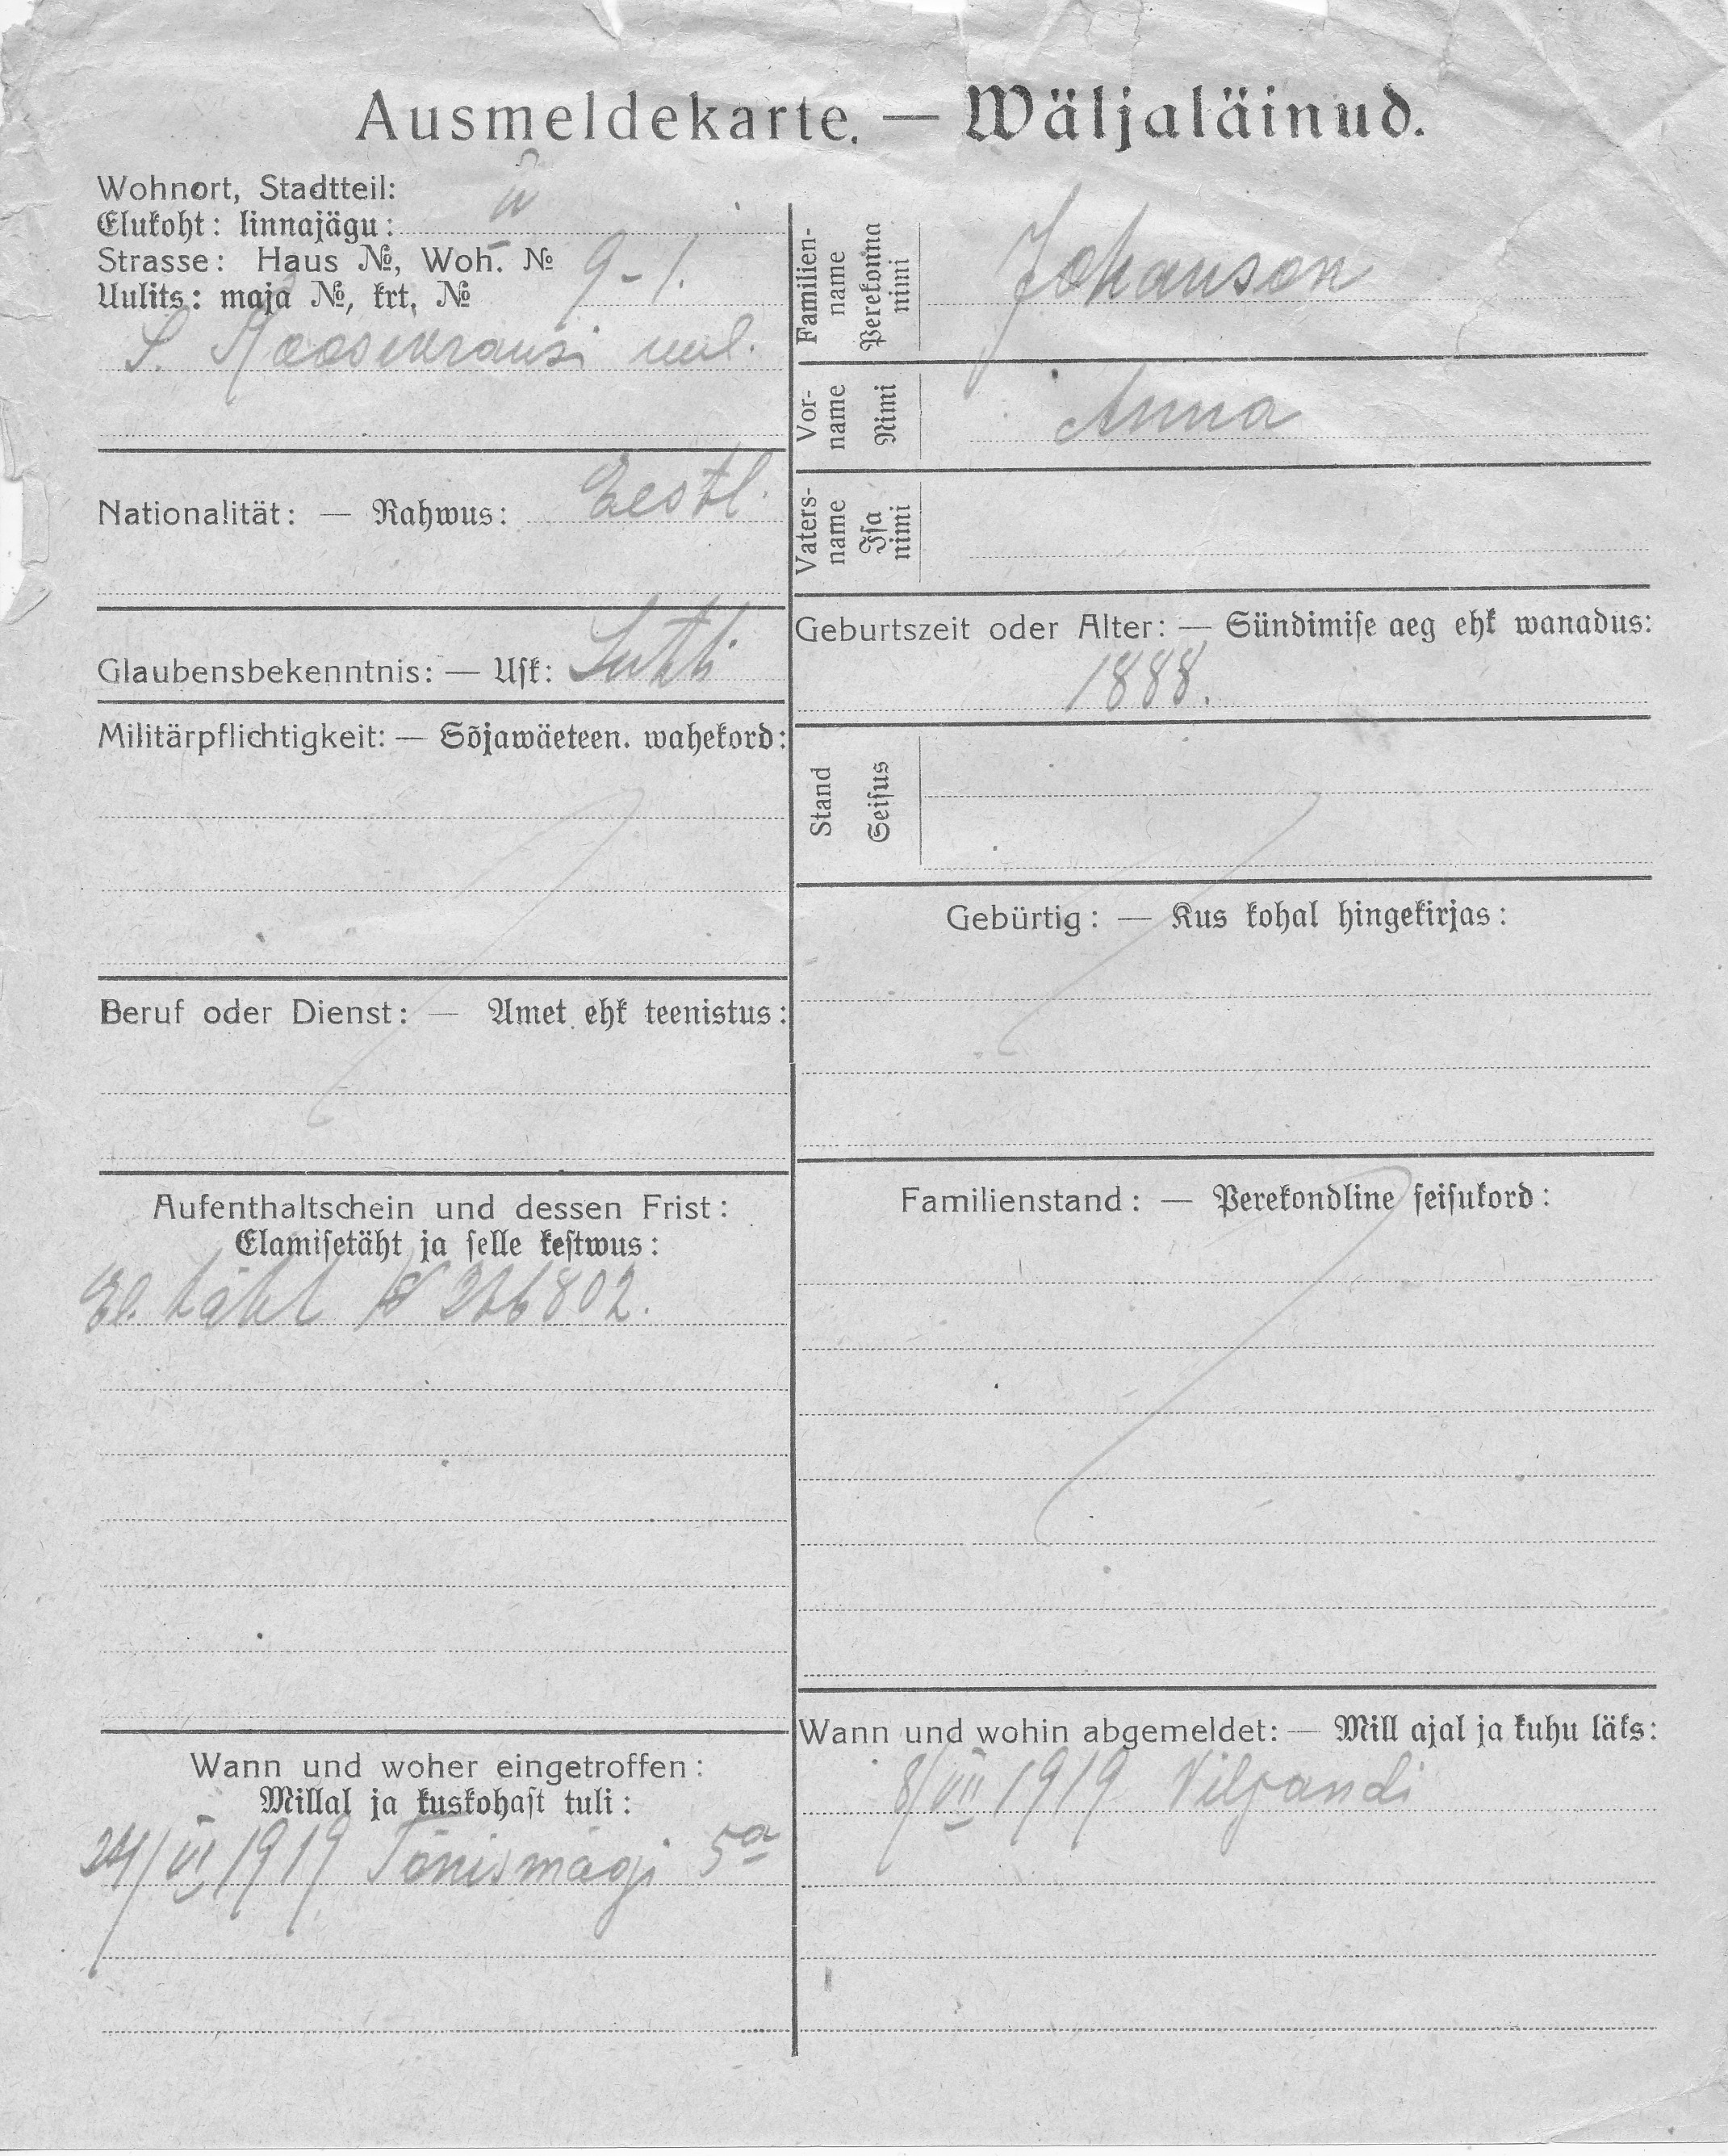 Ausmeldekarte. — Wäljaläinud.
Wohnort, Stadtteil:
Elukoht: linnajägu:
Strasse: Haus №, Woh. № 9-1.
Uulits: maja №, krt, №
S. Roosikransi uul.
Nationalität: — Rahwus: Eestl.
Glaubensbekenntnis: — Usk: Luth
Militärpflichtigkeit: — Sõjawäeteen. wahekord:
Beruf oder Dienst: — Amet ehk teenistus:
Aufenthaltschein und dessen Frist:
Elamisetäht ja selle kestwus:
El. täht № 226802.
Wann und woher eingetroffen:
Millal ja kuskohast tuli:
24/VI 1919 Tõnismägi 5a
Familien-
name
Perekonna
nimi
Johanson
Vor-
name
Nimi
Anna
Vaters-
name
Isa
nimi
Geburtszeit oder Alter: — Sündimise aeg ehk wanadus:
1888.
Stand
Seisus
Gebürtig: — Kus kohal hingekirjas:
Familienstand: — Perekondline seisukord:
Wann und wohin abgemeldet: — Mill ajal ja kuhu läks:
8/VIII 1919 Viljandi